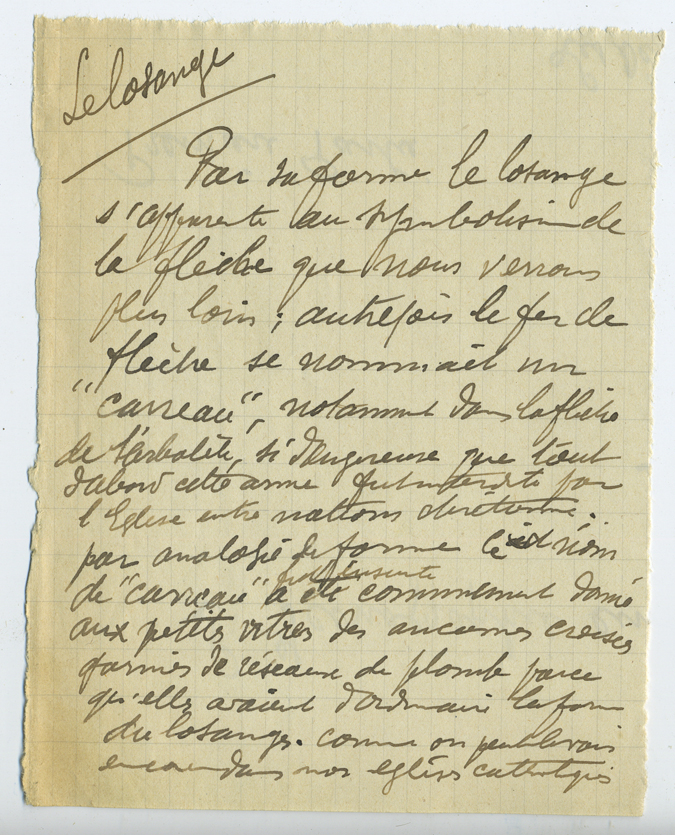 Le losange
Par sa forme le losange
s'apparente au symbolisme de
la flèche que nous verrons
plus loin ; autrefois le fer de
flèche se nommait un
"carreau", notamment dans la flèche
de l'arbalète, si dangereuse que tout
d'abord cette arme fut interdite par
l'Eglise entre nations chrétienne.
par analogie de forme le nom
de "carreau" a été communément donné
aux petites vitres des anciennes croisées
formées de réseaux de plomb parce
qu'elles avaient d'ordinaire la forme
du losange. comme on peut le voir
encore dans nos eglises catholiques